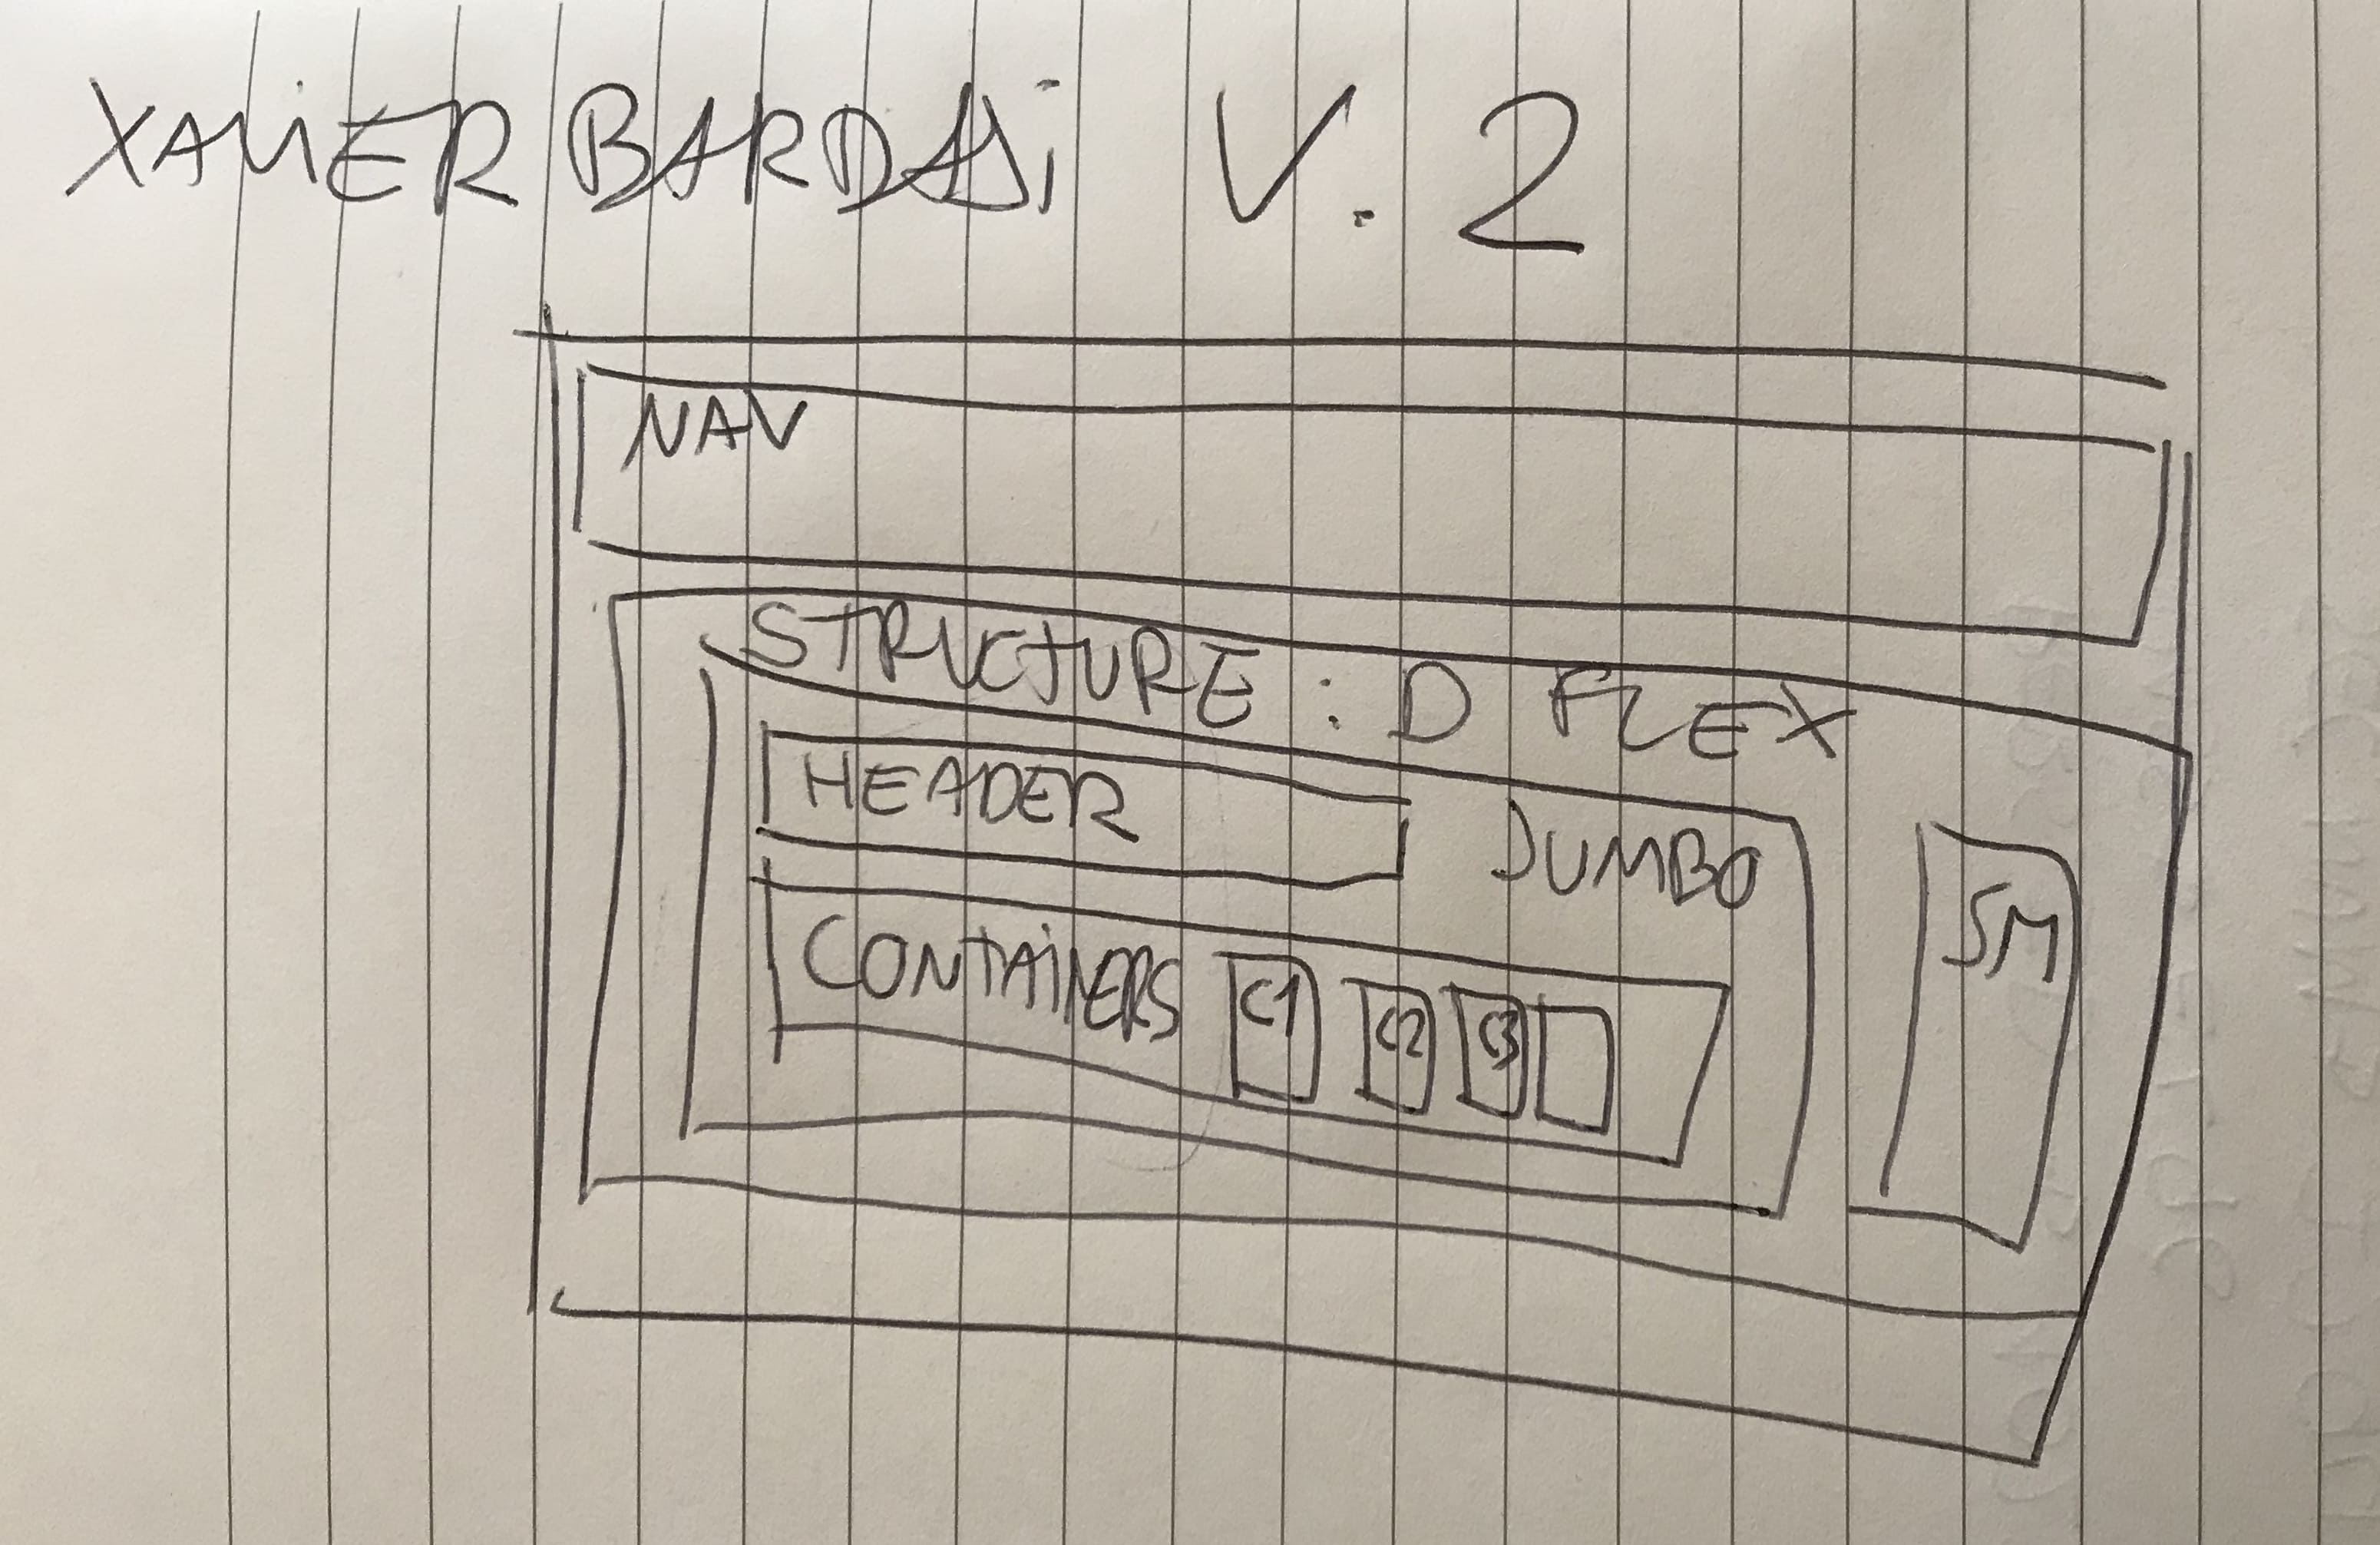 XAViER BARDAJi V. 2
NAV
STRUCTURE : D FLEX
HEADER
JUMBO
SM
CONTAiNERS C1 C2 C3